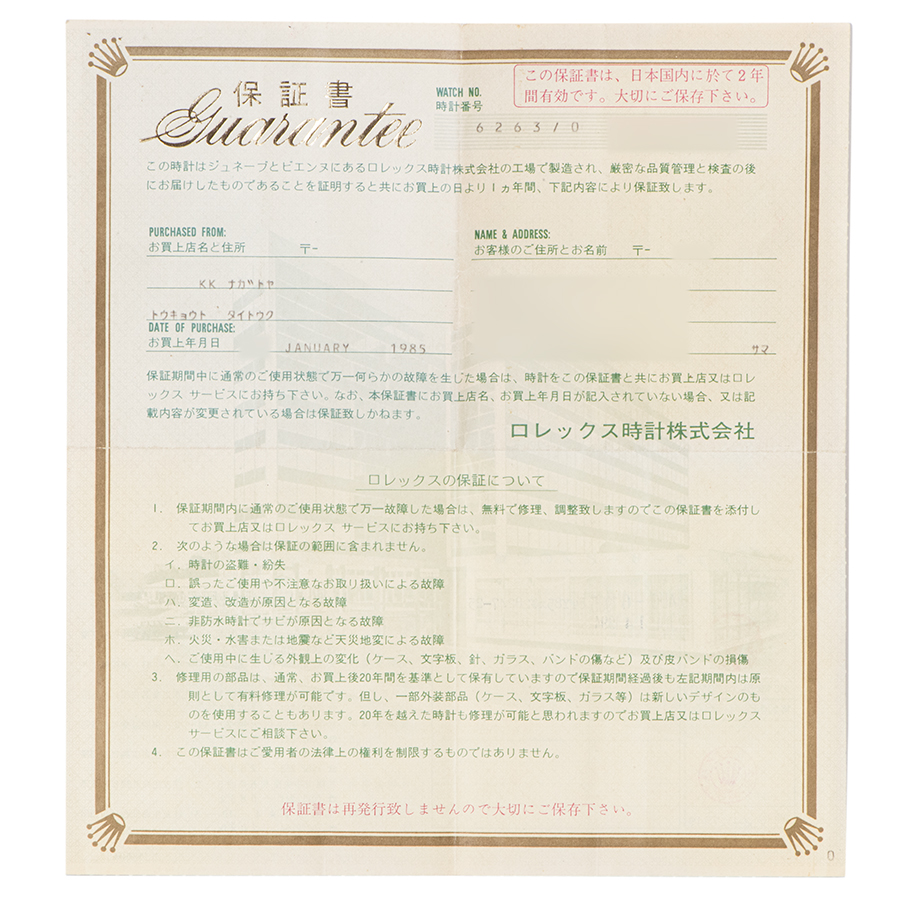 保証書
Guarantee
WATCH NO.
時計番号
6263/0
この保証書は、日本国内に於て2年
間有効です。大切にご保存下さい。
この時計はジュネーブとビエンヌにあるロレックス時計株式会社の工場で製造され、厳密な品質管理と検査の後
にお届けしたものであることを証明すると共にお買上の日より1ヵ年間、下記内容により保証致します。
PURCHASED FROM:
お買上店名と住所 〒-
KK ナガトヤ
トウキョウト タイトウク
DATE OF PURCHASE:
お買上年月日 JANUARY 1985
NAME & ADDRESS:
お客様のご住所とお名前 〒-
サマ
保証期間中に通常のご使用状態で万一何らかの故障を生じた場合は、時計をこの保証書と共にお買上店又はロレ
ックス サービスにお持ち下さい。なお、本保証書にお買上店名、お買上年月日が記入されていない場合、又は記
載内容が変更されている場合は保証致しかねます。
ロレックス時計株式会社
ロレックスの保証について
1. 保証期間内に通常のご使用状態で万一故障した場合は、無料で修理、調整致しますのでこの保証書を添付し
てお買上店又はロレックス サービスにお持ち下さい。
2. 次のような場合は保証の範囲に含まれません。
イ. 時計の盗難・紛失
ロ. 誤ったご使用や不注意なお取り扱いによる故障
ハ. 変造、改造が原因となる故障
ニ. 非防水時計でサビが原因となる故障
ホ. 火災・水害または地震など天災地変による故障
ヘ. ご使用中に生じる外観上の変化（ケース、文字板、針、ガラス、バンドの傷など）及び皮バンドの損傷
3. 修理用の部品は、通常、お買上後20年間を基準として保有していますので保証期間経過後も左記期間内は原
則として有料修理が可能です。但し、一部外装部品（ケース、文字板、ガラス等）は新しいデザインのも
のを使用することもあります。20年を越えた時計も修理が可能と思われますのでお買上店又はロレックス
サービスにご相談下さい。
4. この保証書はご愛用者の法律上の権利を制限するものではありません。
保証書は再発行致しませんので大切にご保存下さい。
0